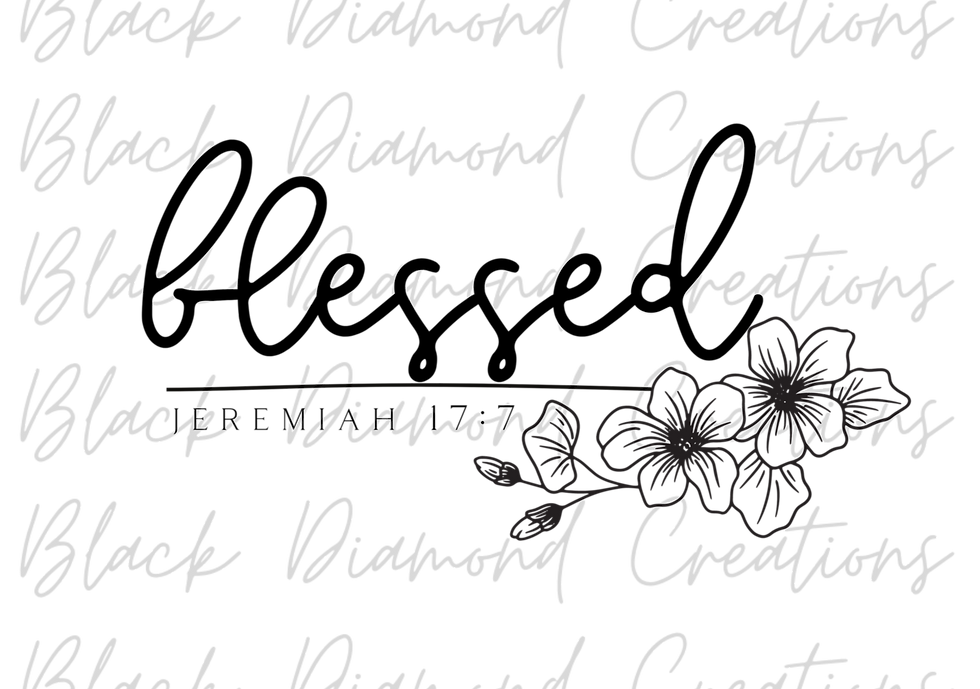 Black Diamond Creations
Black Diamond Creations
blessed
Black Diamond Creations
Black Diamond Creations
JEREMIAH 17:7
Black Diamond Creations
Black Diamond Creations